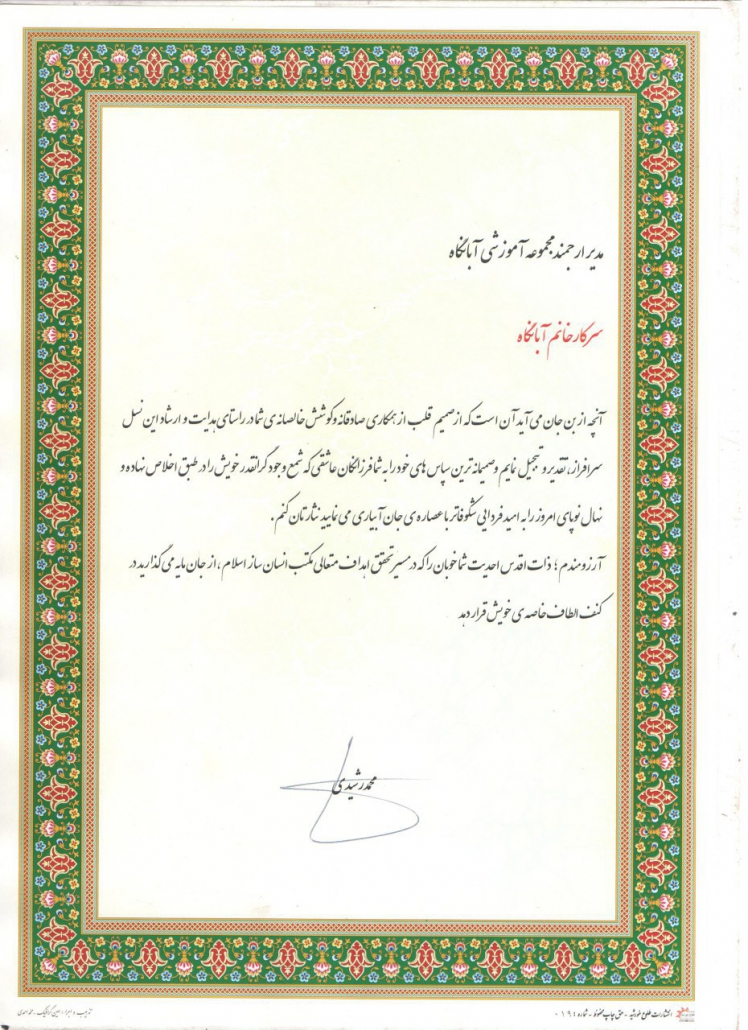 مدیر ارجمند مجموعه آموزشی آبانگاه
سرکار خانم آبانگاه
آنچه از بن جان می آید آن است که از صمیم قلب از همکاری صادقانه و کوشش خالصانه ی شما در راستای هدایت و ارشاد این نسل
سرافراز، تقدیر و تجلیل نمایم و صمیمانه ترین سپاس های خود را به شما فرزانگان عاشقی که شمع وجود گرانقدر خویش را در طبق اخلاص نهاده و
نهال نوپای امروز را به امید فردایی شکوفاتر با عصاره ی جان آبیاری می نمایید نثارتان کنم.
آرزومندم؛ ذات اقدس احدیت شما خوبان را که در مسیر تحقق اهداف متعالی مکتب انسان ساز اسلام، از جان مایه می گذارید در
کنف الطاف خاصه ی خویش قرار دهد
محمد رشیدی
انتشارات طلوع خورشید - حق چاپ محفوظ - شماره ۰۱۹۴